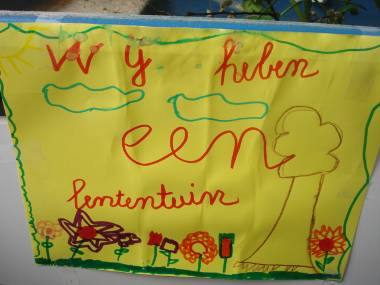 Wy heben
een
lententuin